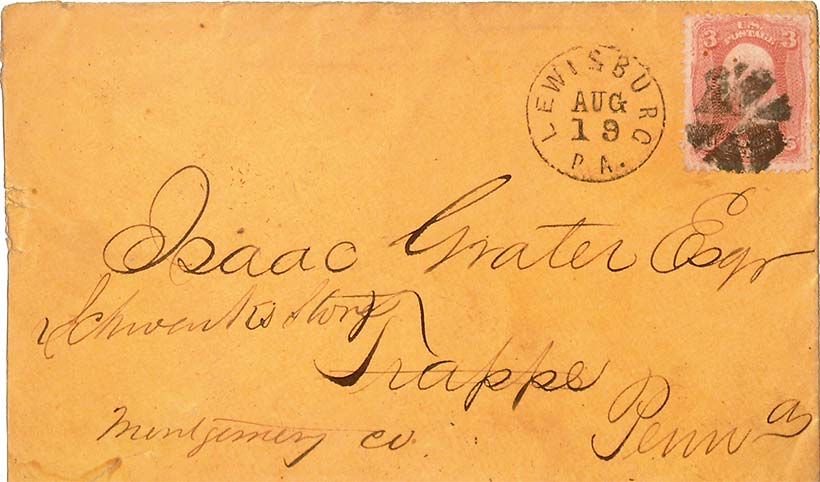 U.S. POSTAGE
3 3
LEWISBURG
AUG
19
PA.
Isaac Grater Esqr
Schwenks Store
Trappe
Penna
Montgomery co.